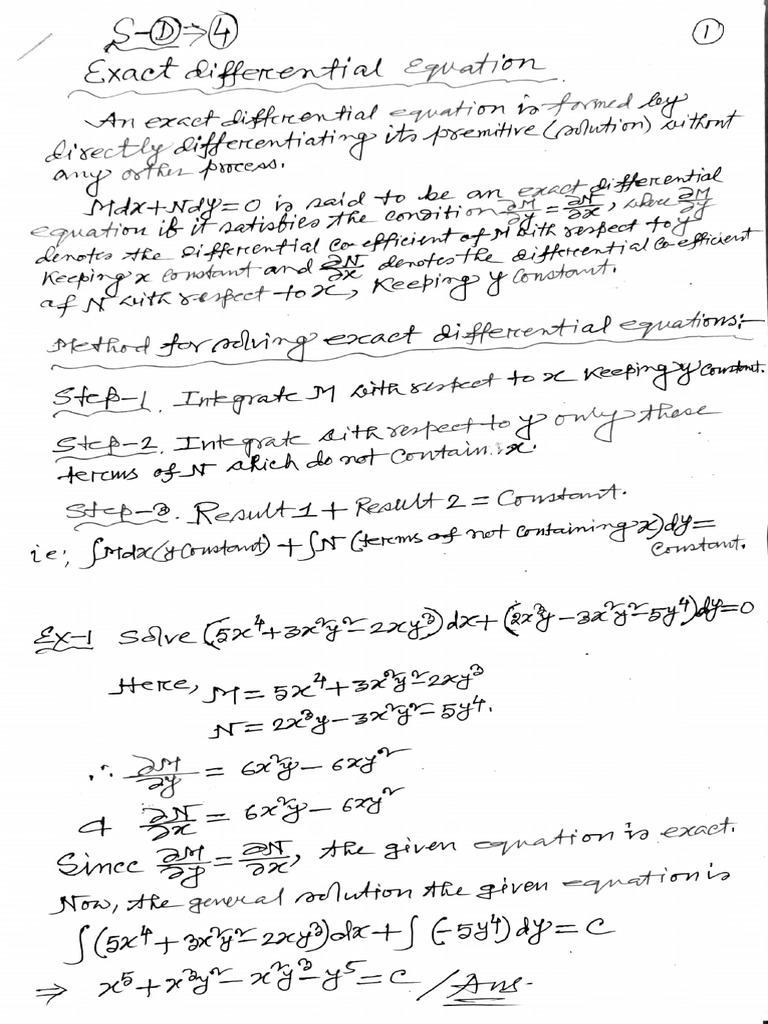 S-Ⓓ⇒④
①
Exact differential Equation
An exact differential equation is formed by
directly differentiating its premitive (solution) without
any other process.
Mdx+Ndy=0 is said to be an exact differential
equation if it satisfies the condition ∂M/∂y = ∂N/∂x, where ∂M/∂y
denotes the differential co-efficient of M with respect to y
keeping x constant and ∂N/∂x denotes the differential co-efficient
of N with respect to x, keeping y constant.
Method for solving exact differential equations:-
Step-1. Integrate M with respect to x keeping y constant.
Step-2. Integrate with respect to y only those
terms of N which do not contain x.
Step-3. Result 1 + Result 2 = Constant.
ie; ∫Mdx(y constant) + ∫N (terms of not containing x)dy =
constant.
Ex-1 Solve (5x⁴+3x²y²-2xy³)dx+(2x³y-3x²y²-5y⁴)dy=0
Here, M = 5x⁴+3x²y²-2xy³
N = 2x³y-3x²y²-5y⁴.
∴ ∂M/∂y = 6x²y-6xy²
& ∂N/∂x = 6x²y-6xy²
Since ∂M/∂y = ∂N/∂x, the given equation is exact.
Now, the general solution the given equation is
∫(5x⁴+3x²y²-2xy³)dx+∫(-5y⁴)dy=c
⇒ x⁵+x³y²-x²y³-y⁵=c / Ans.